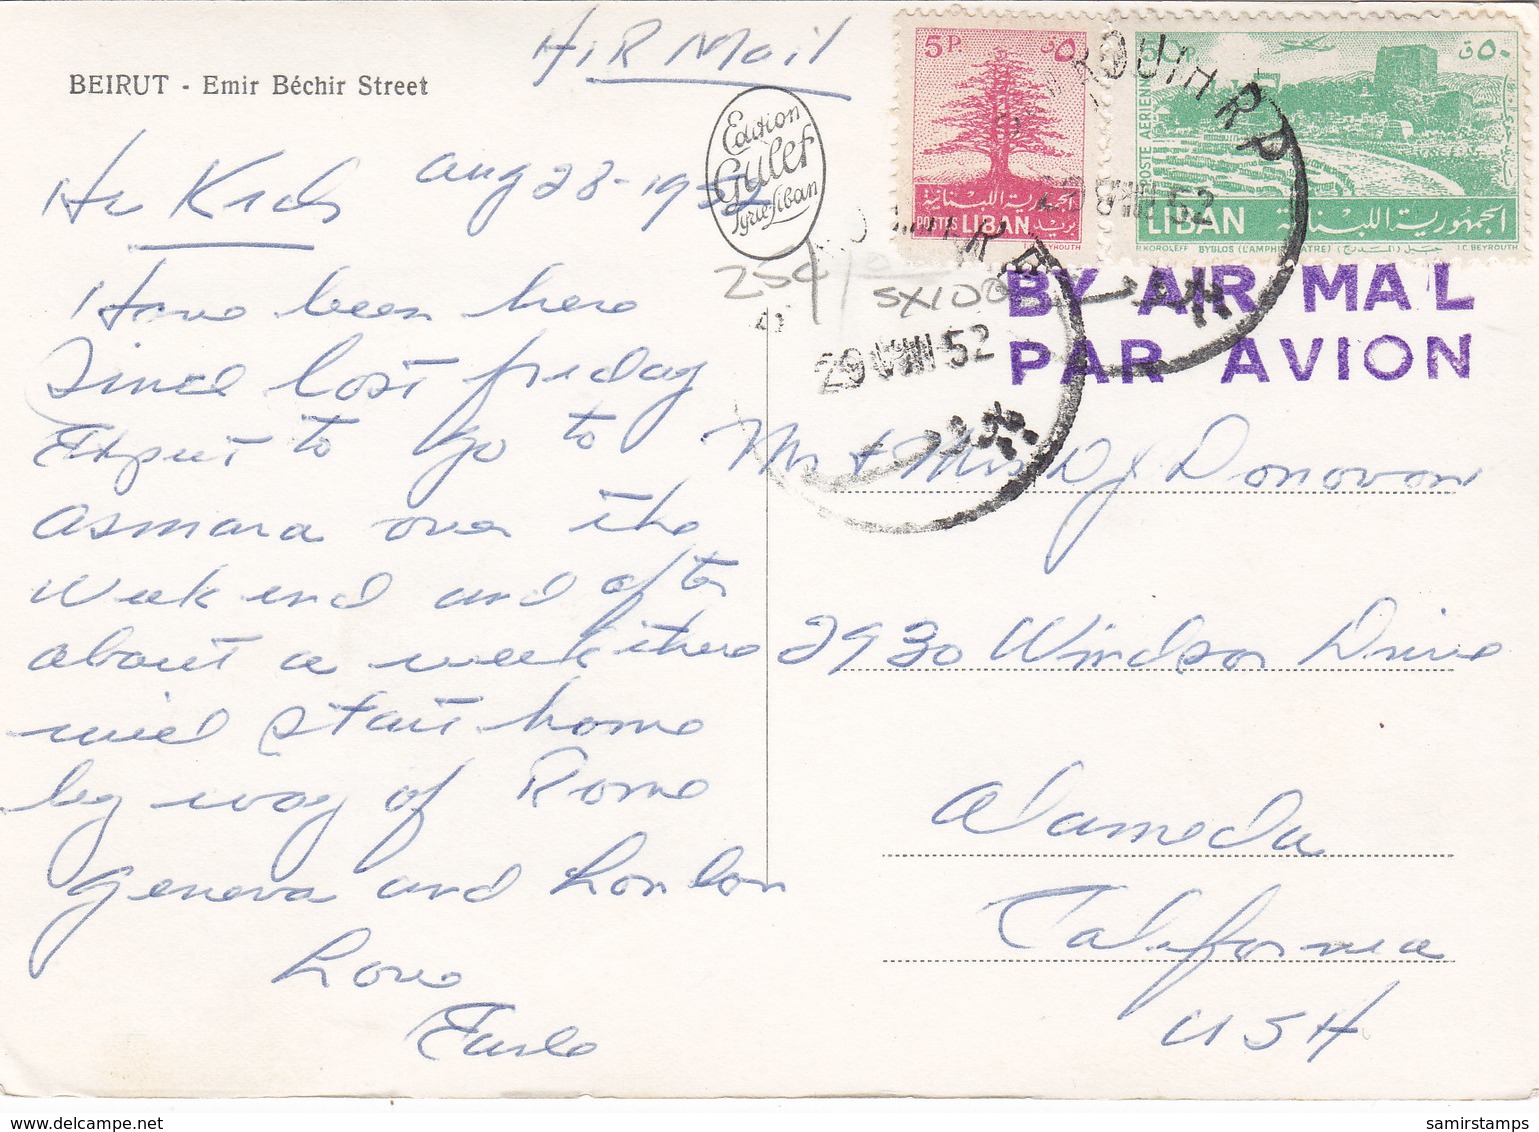 AIR Mail
BEIRUT - Emir Béchir Street
Edition
Gulef
Syrie-Liban
Aug 28-1952
Hi Kids
Have been here
Since last friday
Expect to go to
Asmara over the
Week end and after
about a week there
will start home
by way of Rome
Geneva and London
Love
Earle
254
5X100
5P.
٥ق
الجمهورية اللبنانية
بريد
POSTES LIBAN
50P.
٥٠ق
POSTE AERIENNE
LIBAN
الجمهورية اللبنانية
P. KOROLEFF BYBLOS (L'AMPHITHEATRE) I.C. BEYROUTH
BEYROUTH R.P
29 VIII 52
29 VIII 52
BY AIR MAIL
PAR AVION
Mr & Mrs D J Donovan
2930 Windsor Drive
Alameda
California
USA
samirstamps.delcampe.net